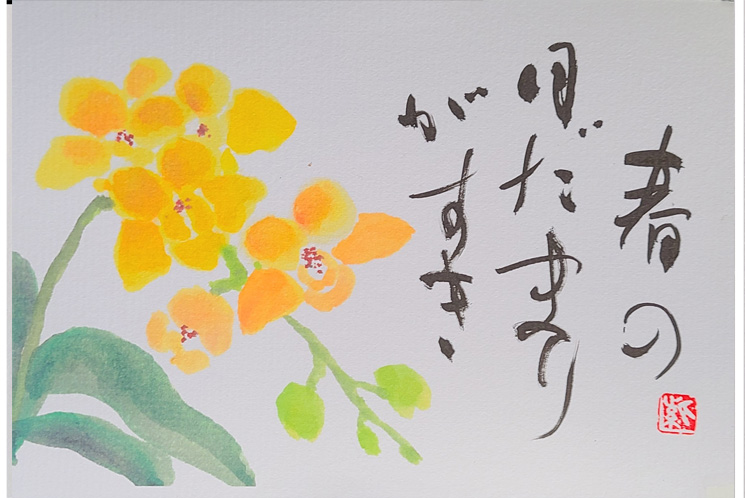 春の
日だまり
がすき